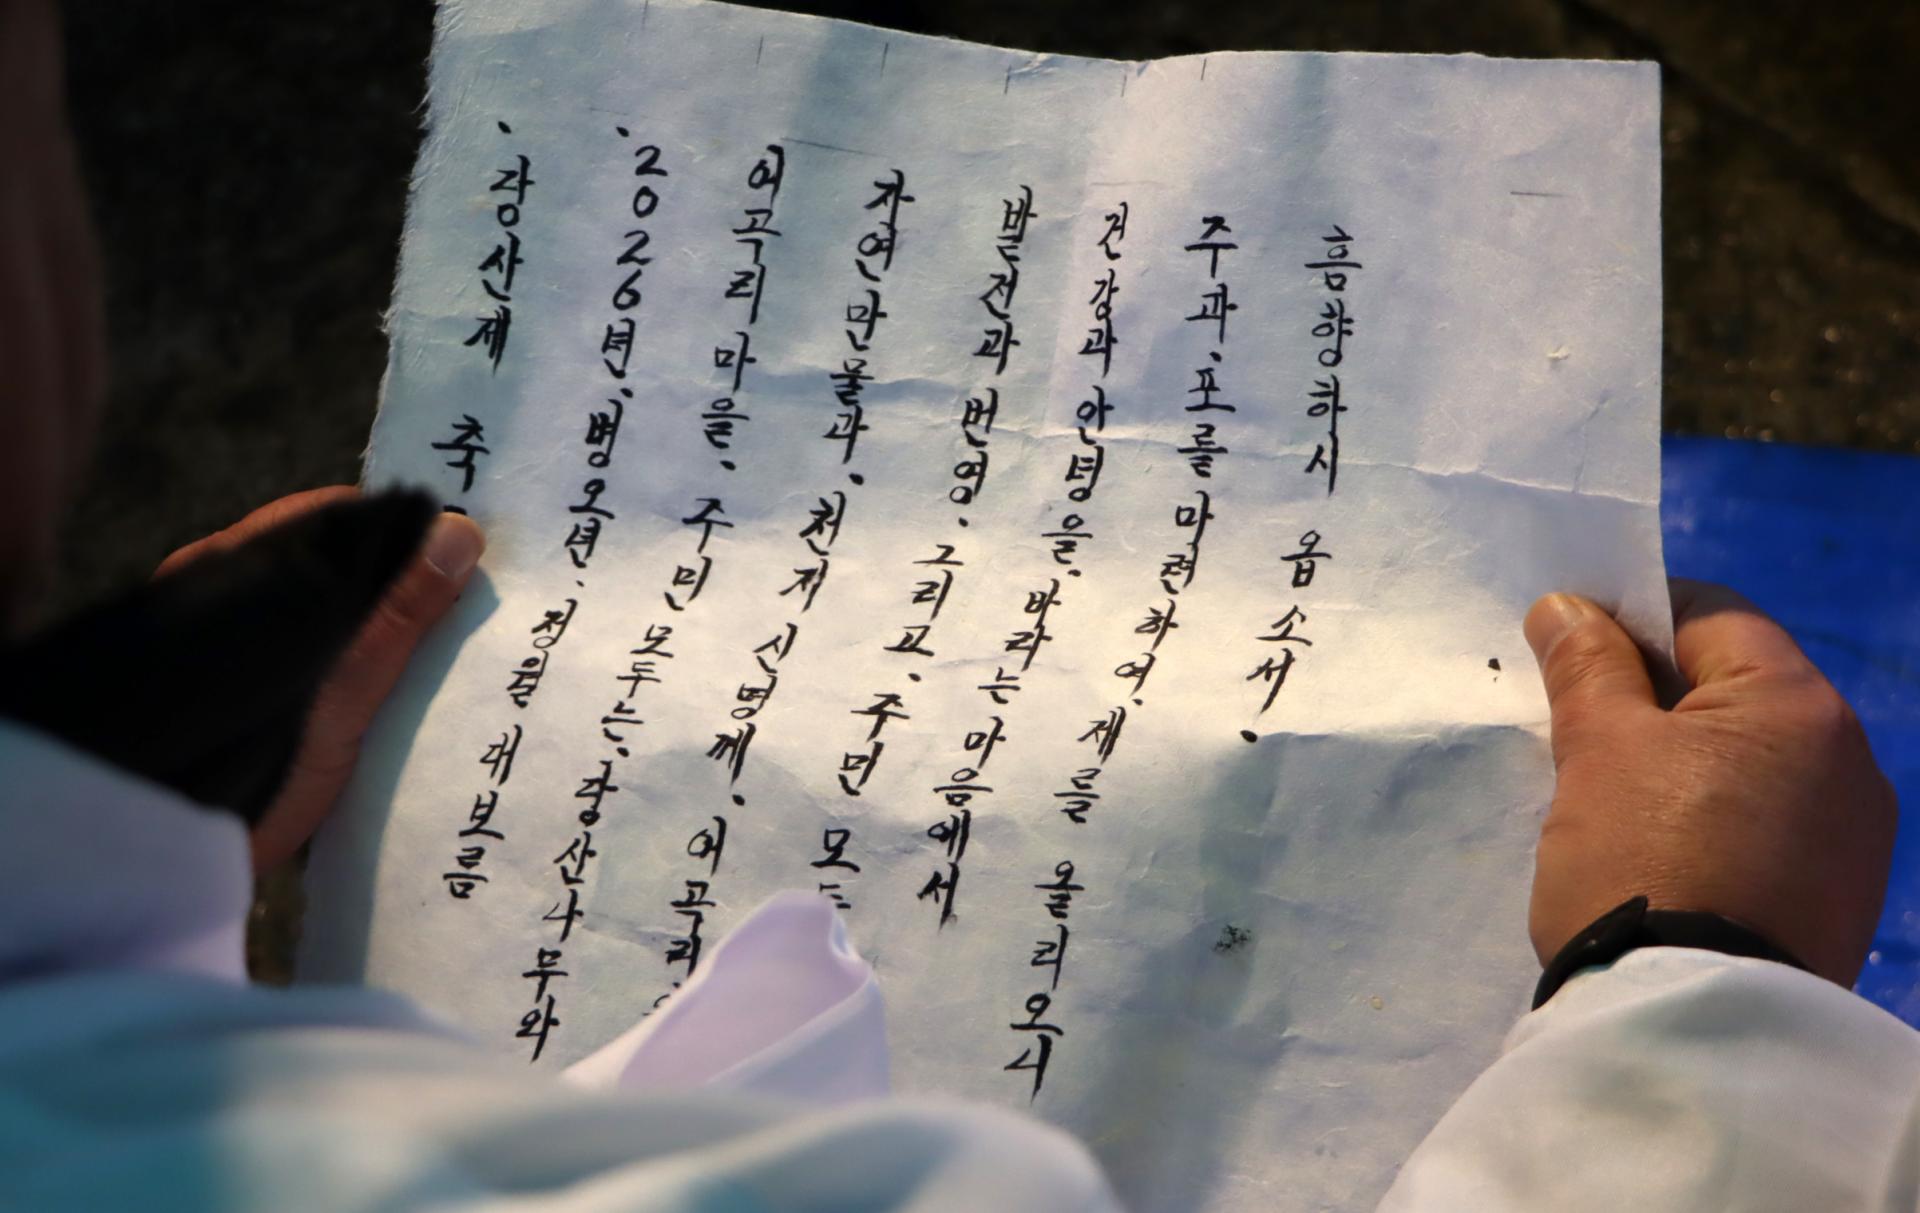 ·당산제 축·
·2026년.병오년.정월 대보름
여곡리 마을. 주민 모두는.당산나무와
자연만물과. 천지신명께. 여곡리
발전과 번영.그리고.주민 모두
건강과 안녕을.바라는 마음에서
주과.포를 마련하여.제를 올리오시
흠향하시 옵소서.